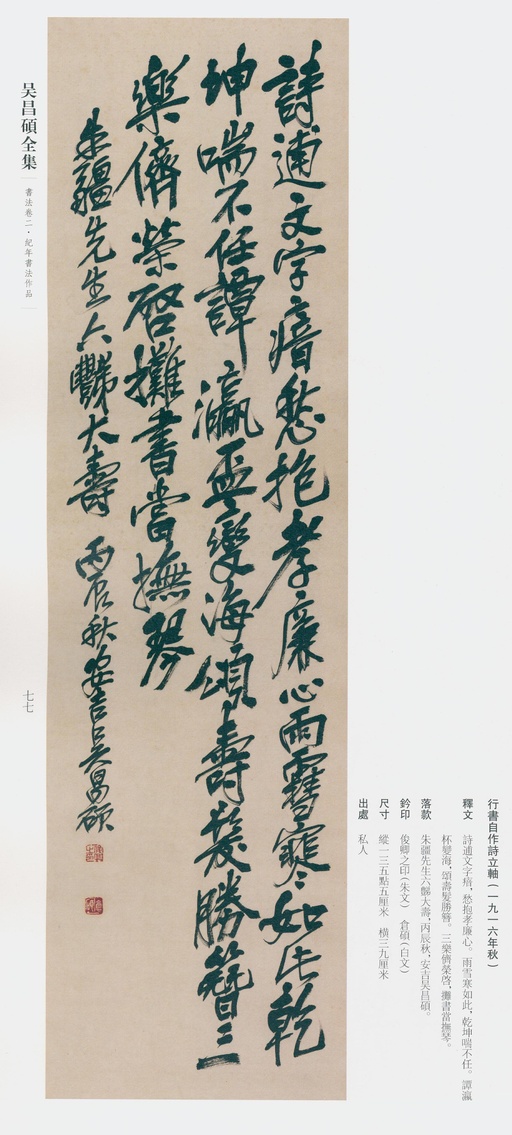 詩逋文字瘖愁抱孝廉心雨雪寒如此乾
坤喘不任譚瀛盃變海頌壽髮勝簪三
樂儕榮啓攤書當撫琴
朱疆先生六豑大壽 丙辰秋安吉吴昌碩
行書自作詩立軸(一九一六年秋)
釋文 詩逋文字瘖,愁抱孝廉心。雨雪寒如此,乾坤喘不任。譚瀛
杯變海,頌壽髮勝簪。三樂儕榮啓,攤書當撫琴。
落款 朱疆先生六豑大壽,丙辰秋,安吉吴昌碩。
鈐印 俊卿之印(朱文) 倉碩(白文)
尺寸 縱一三五點五厘米 橫三九厘米
出處 私人
吴昌碩全集
書法卷二·紀年書法作品
七七